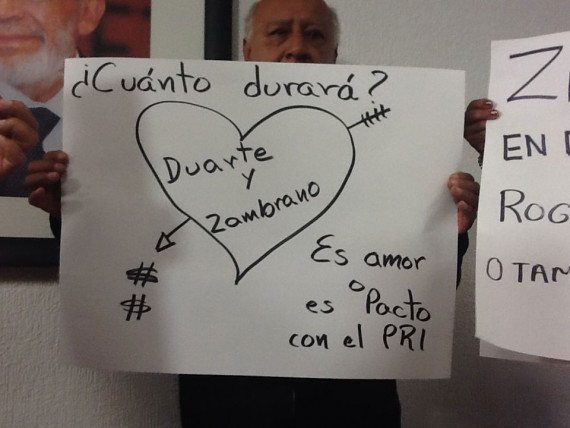 ¿Cuánto durará?
Duarte
y
Zambrano
#
#
Es amor
o
es Pacto
con el PRI
EN
ROG
O TAM